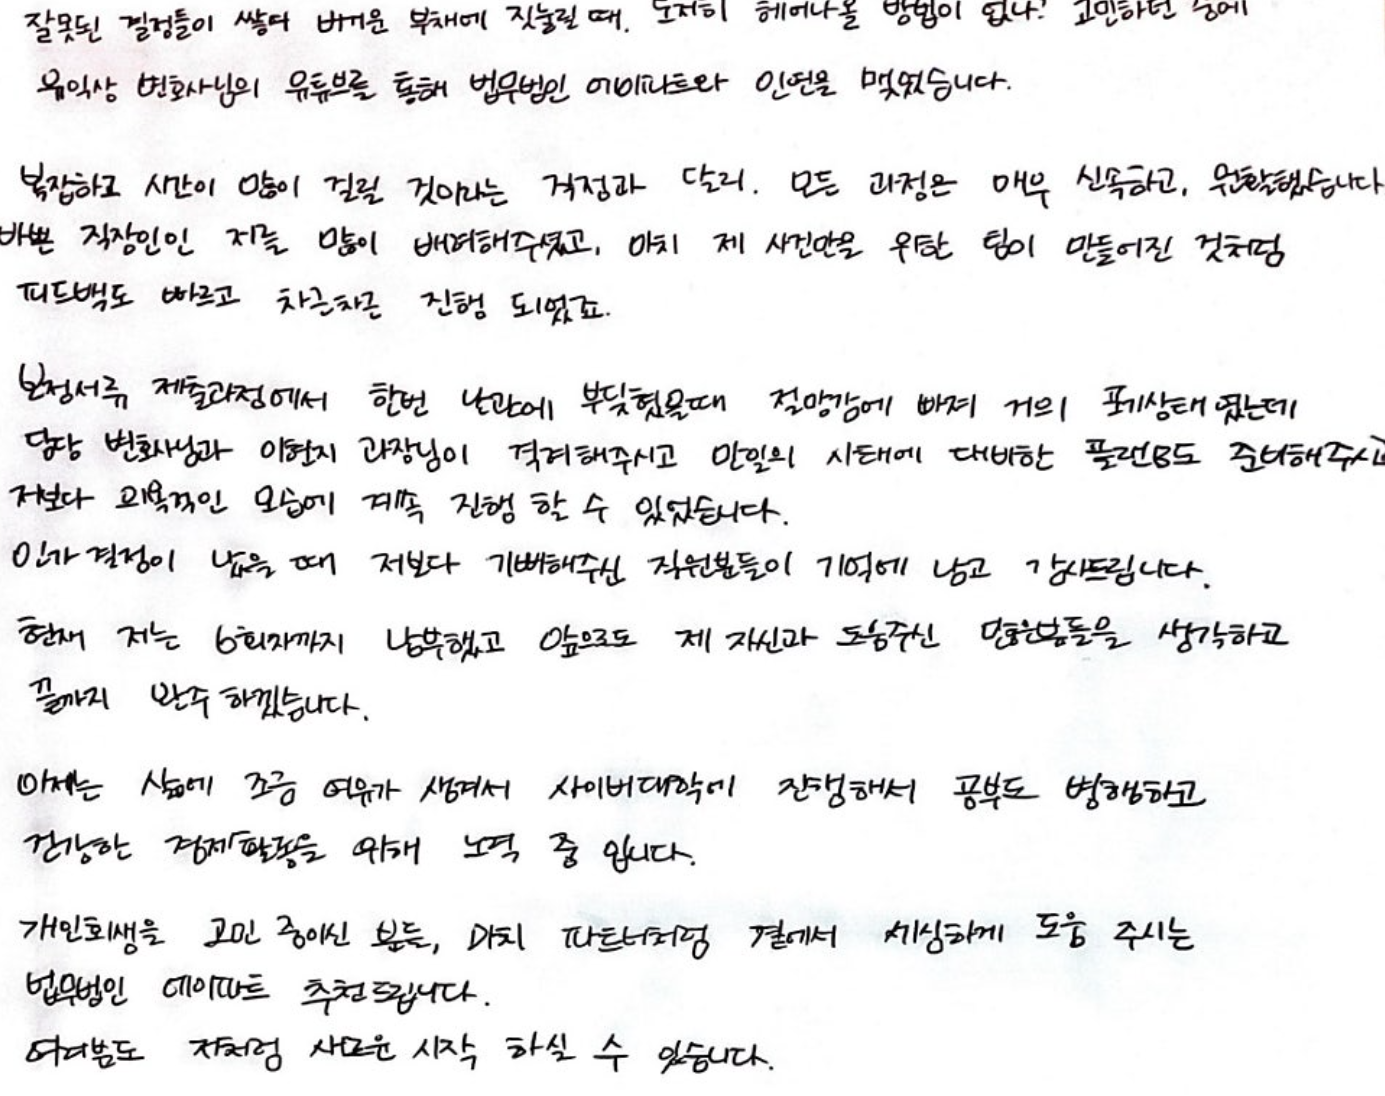 잘못된 결정들이 쌓여 버거운 부채에 짓눌릴 때, 도저히 헤어나올 방법이 없나? 고민하던 중에
변호사님의 유튜브를 통해 법무법인 에이파트와 인연을 맺었습니다.
복잡하고 시간이 많이 걸릴 것이라는 걱정과 달리, 모든 과정은 매우 신속하고, 원활했습니다
바쁜 직장인인 저를 많이 배려해주셨고, 마치 제 사건만을 위한 팀이 만들어진 것처럼
피드백도 빠르고 차근차근 진행 되었죠.
보정서류 제출과정에서 한번 난관에 부딪혔을때 절망감에 빠져 거의 포기상태였는데
담당 변호사님과 이현지 과장님이 격려해주시고 만일의 사태에 대비한 플랜B도 준비해주시고
저보다 의욕적인 모습에 계속 진행 할 수 있었습니다.
인가결정이 났을 때 저보다 기뻐해주신 직원분들이 기억에 남고 감사드립니다.
현재 저는 6회차까지 납부했고 앞으로도 제 자신과 도움주신 분들을 생각하고
끝까지 완주 하겠습니다.
이제는 삶에 조금 여유가 생겨서 사이버대학에 진행해서 공부도 병행하고
건강한 경제활동을 위해 노력 중 입니다.
개인회생을 고민 중이신 분들, 마치 파트너처럼 곁에서 세심하게 도움 주시는
법무법인 에이파트 추천드립니다.
여러분도 저처럼 새로운 시작 하실 수 있습니다.